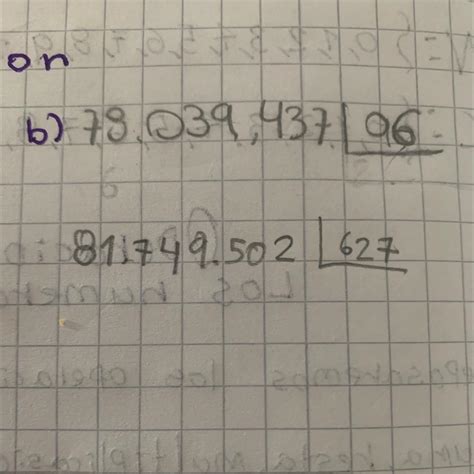 on
b) 78.039,437 96
81.749.502 627